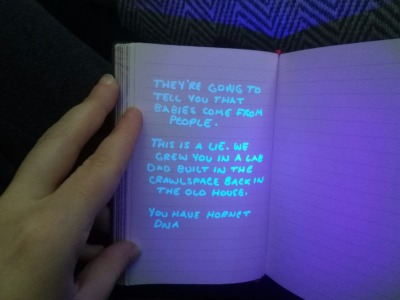 THEY'RE GOING TO
TELL YOU THAT
BABIES COME FROM
PEOPLE.
THIS IS A LIE. WE
GREW YOU IN A LAB
DAD BUILT IN THE
CRAWLSPACE BACK IN
THE OLD HOUSE.
YOU HAVE HORNET
DNA